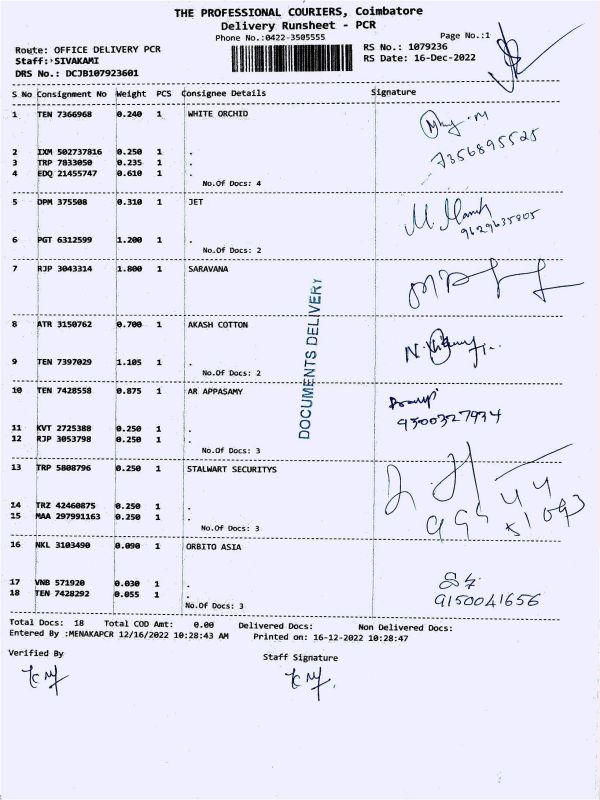 THE PROFESSIONAL COURIERS, Coimbatore
Delivery Runsheet - PCR
Phone No.:0422-3505555 Page No.:1
Route: OFFICE DELIVERY PCR RS No.: 1079236
Staff: SIVAKAMI RS Date: 16-Dec-2022
DRS No.: DCJB107923601
S No Consignment No Weight PCS Consignee Details Signature
1 TEN 7366968 0.240 1 WHITE ORCHID
7356895525
2 IXM 502737816 0.250 1 .
3 TRP 7833050 0.235 1 .
4 EDQ 21455747 0.610 1 .
No.Of Docs: 4
5 DPM 375508 0.310 1 JET
9629635805
6 PGT 6312599 1.200 1 .
No.Of Docs: 2
7 RJP 3043314 1.800 1 SARAVANA
DOCUMENTS DELIVERY
8 ATR 3150762 0.700 1 AKASH COTTON
9 TEN 7397029 1.105 1 .
No.Of Docs: 2
10 TEN 7428558 0.875 1 AR APPASAMY
11 KVT 2725388 0.250 1 .
12 RJP 3053798 0.250 1 .
No.Of Docs: 3
13 TRP 5808796 0.250 1 STALWART SECURITYS
14 TRZ 42460875 0.250 1 .
15 MAA 297991163 0.250 1 .
No.Of Docs: 3
16 NKL 3103490 0.090 1 ORBITO ASIA
17 VNB 571920 0.030 1 .
18 TEN 7428292 0.055 1 .
9150041656
No.Of Docs: 3
Total Docs: 18 Total COD Amt: 0.00 Delivered Docs: Non Delivered Docs:
Entered By :MENAKAPCR 12/16/2022 10:28:43 AM Printed on: 16-12-2022 10:28:47
Verified By Staff Signature